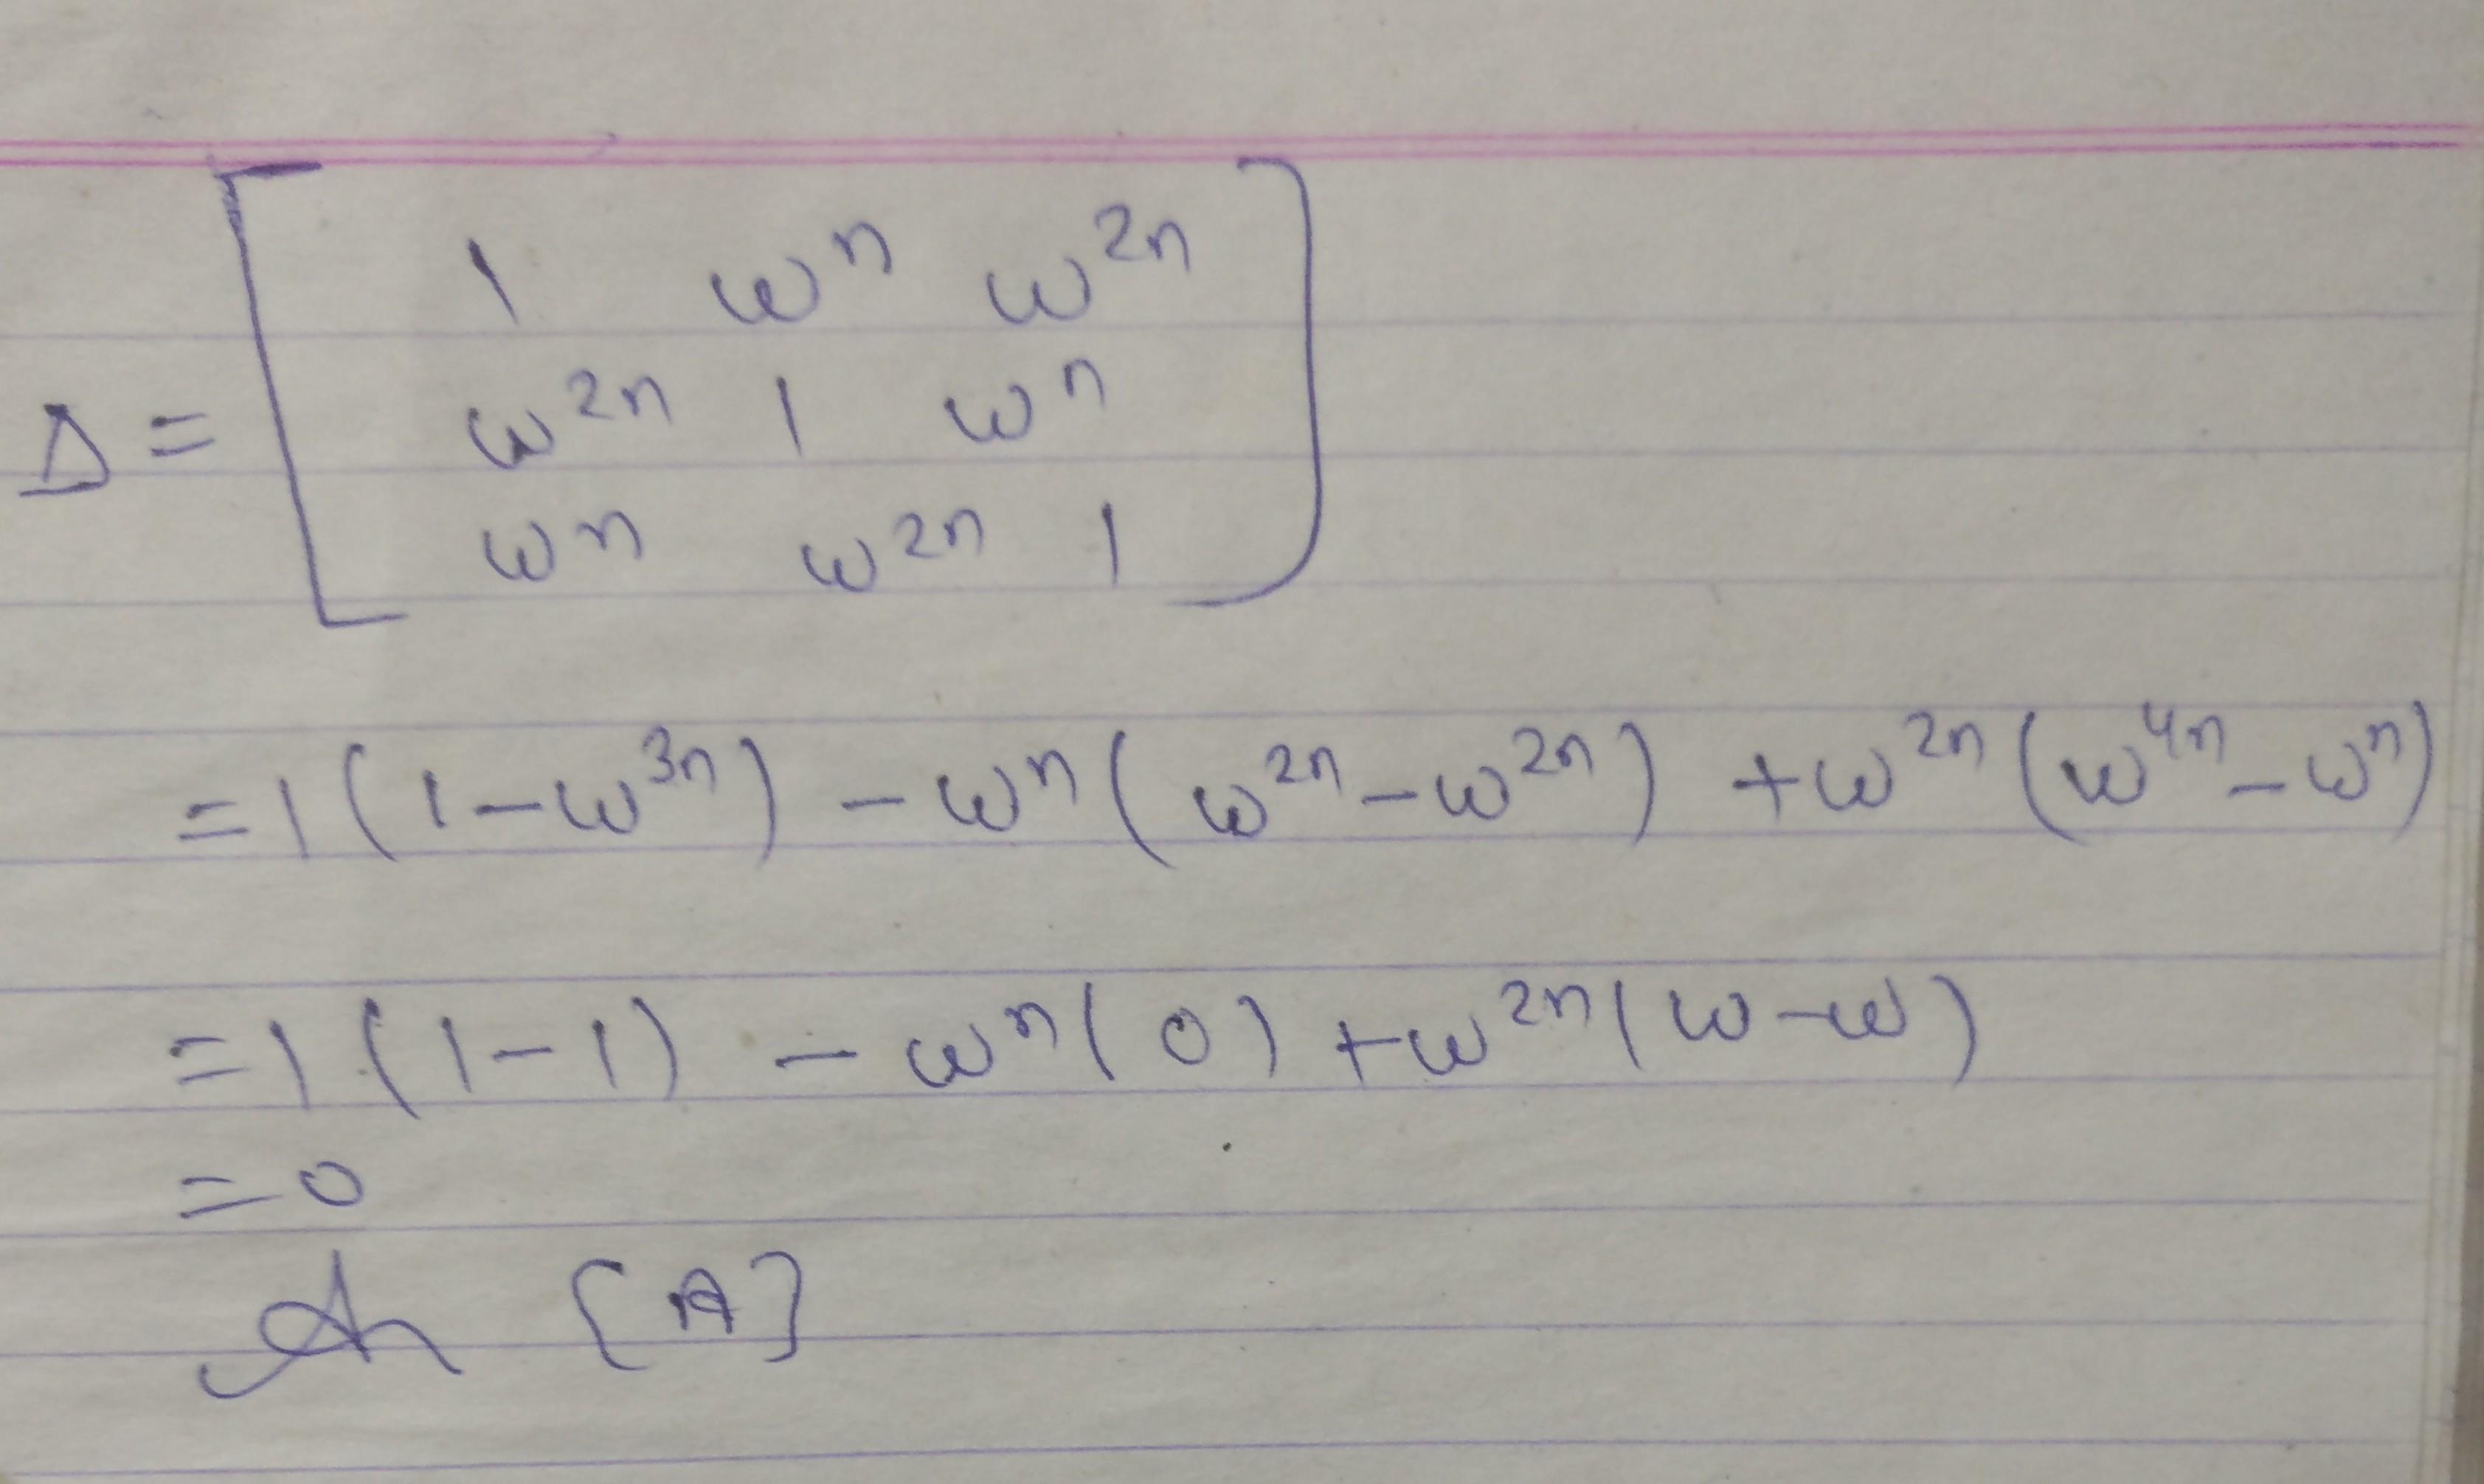 1 ωⁿ ω²ⁿ
Δ = [ ω²ⁿ 1 ωⁿ ]
ωⁿ ω²ⁿ 1
= 1 (1 - ω³ⁿ) - ωⁿ (ω²ⁿ - ω²ⁿ) + ω²ⁿ (ω⁴ⁿ - ωⁿ)
= 1 (1 - 1) - ωⁿ (0) + ω²ⁿ (ω - ω)
= 0
[A]